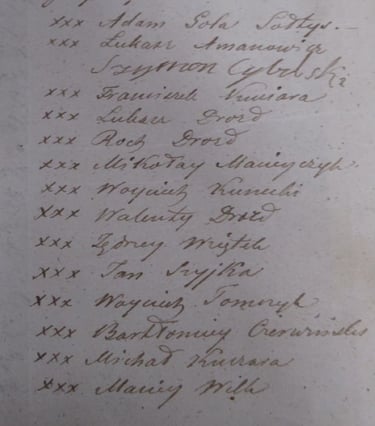 xxx Adam Gola Sołtys. —
xxx Łukasz Amanowicz
Szymon Cybulski
xxx Franciszek Kuciara
xxx Łukasz Drozd
xxx Roch Drozd
xxx Mikołay Maciyczyk
xxx Woyciech Kunecki
xxx Walenty Drozd
xxx Jędrzey Wiątek
xxx Jan Szyjka
xxx Woyciech Tomczyk
xxx Bartłomiey Czerwiński
xxx Michał Kuciara
xxx Maciey Wilk